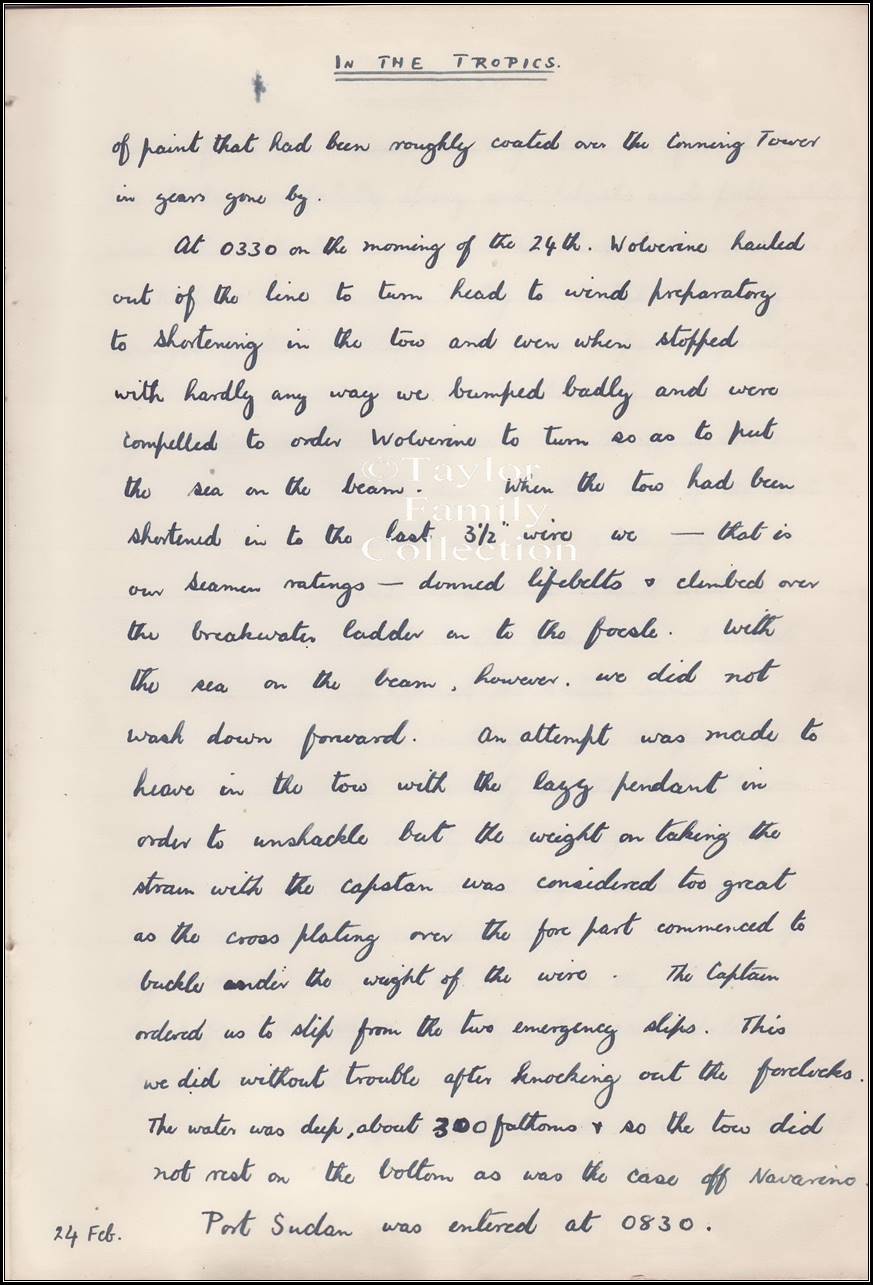 IN THE TROPICS.
of paint that had been roughly coated over the Conning Tower
in years gone by.
At 0330 on the morning of the 24th. Wolverine hauled
out of the line to turn head to wind preparatory
to shortening in the tow and even when stopped
with hardly any way we bumped badly and were
compelled to order Wolverine to turn so as to put
the sea on the beam. When the tow had been
shortened in to the last 3½" wire we — that is
our seamen ratings — donned lifebelts & climbed over
the breakwater ladder on to the focsle. With
the sea on the beam, however, we did not
wash down forward. An attempt was made to
heave in the tow with the lazy pendant in
order to unshackle but the weight on taking the
strain with the capstan was considered too great
as the cross plating over the fore part commenced to
buckle under the weight of the wire. The Captain
ordered us to slip from the two emergency slips. This
we did without trouble after knocking out the forelocks.
The water was deep, about 300 fathoms & so the tow did
not rest on the bottom as was the case off Navarino.
24 Feb. Port Sudan was entered at 0830.
©Taylor
Family
Collection